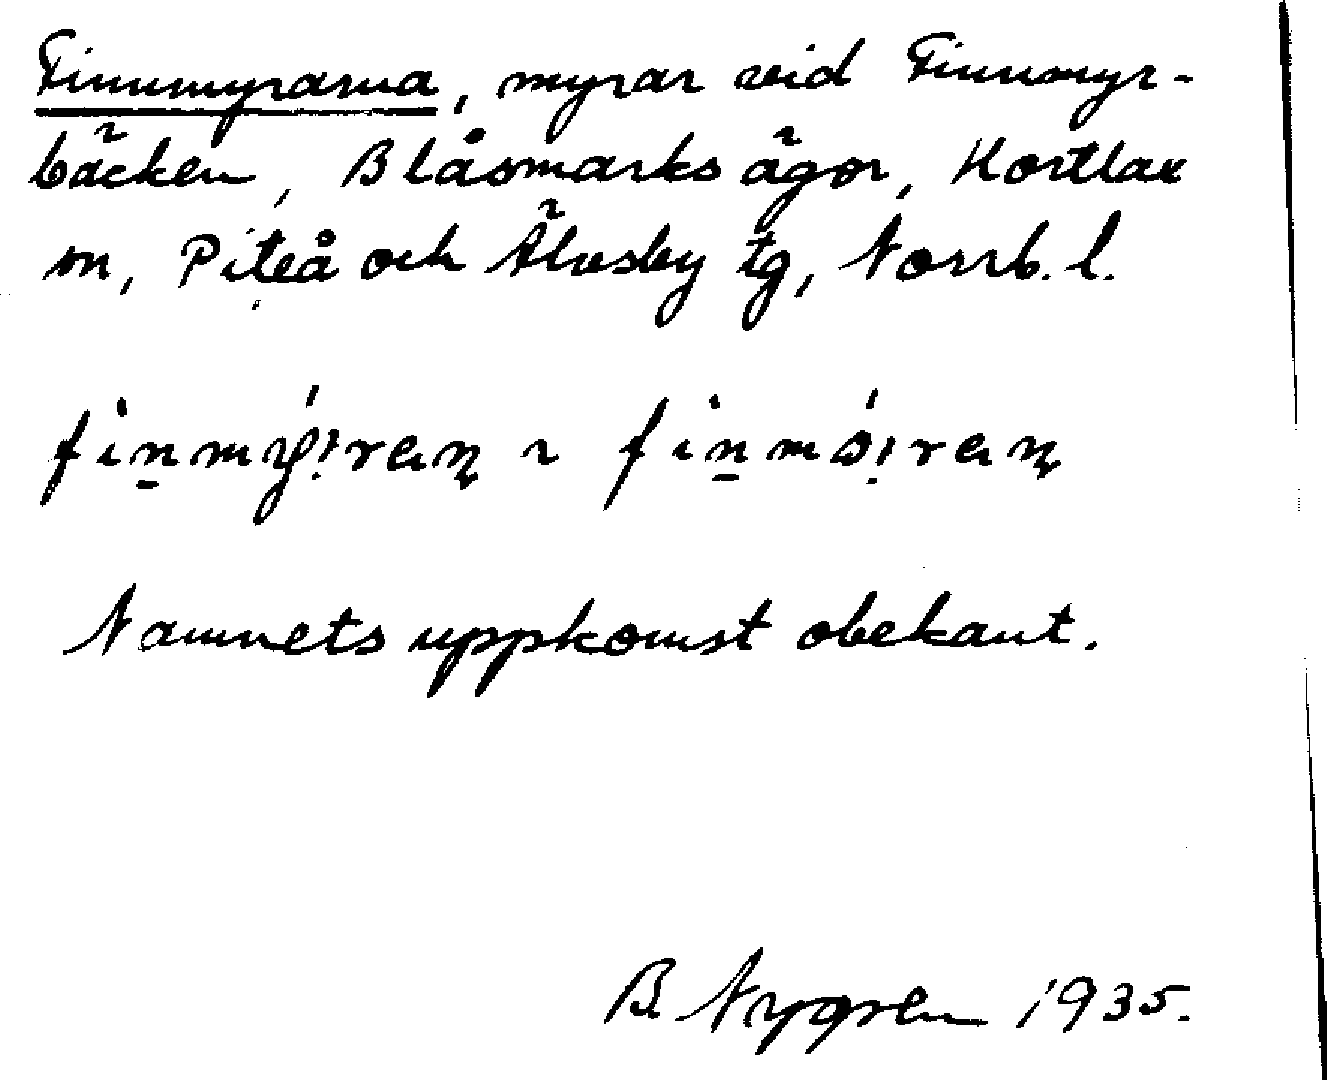 Finnmyrarna, myrar vid Finnmyr-
bäcken, Blåsmarks ägor, Hortlax
sn, Piteå och Älvsby tg, Norrb. l.
fin̠mý!ran ~ fin̠mǿ!ran
Namnets uppkomst obekant.
B. Nygren 1935.